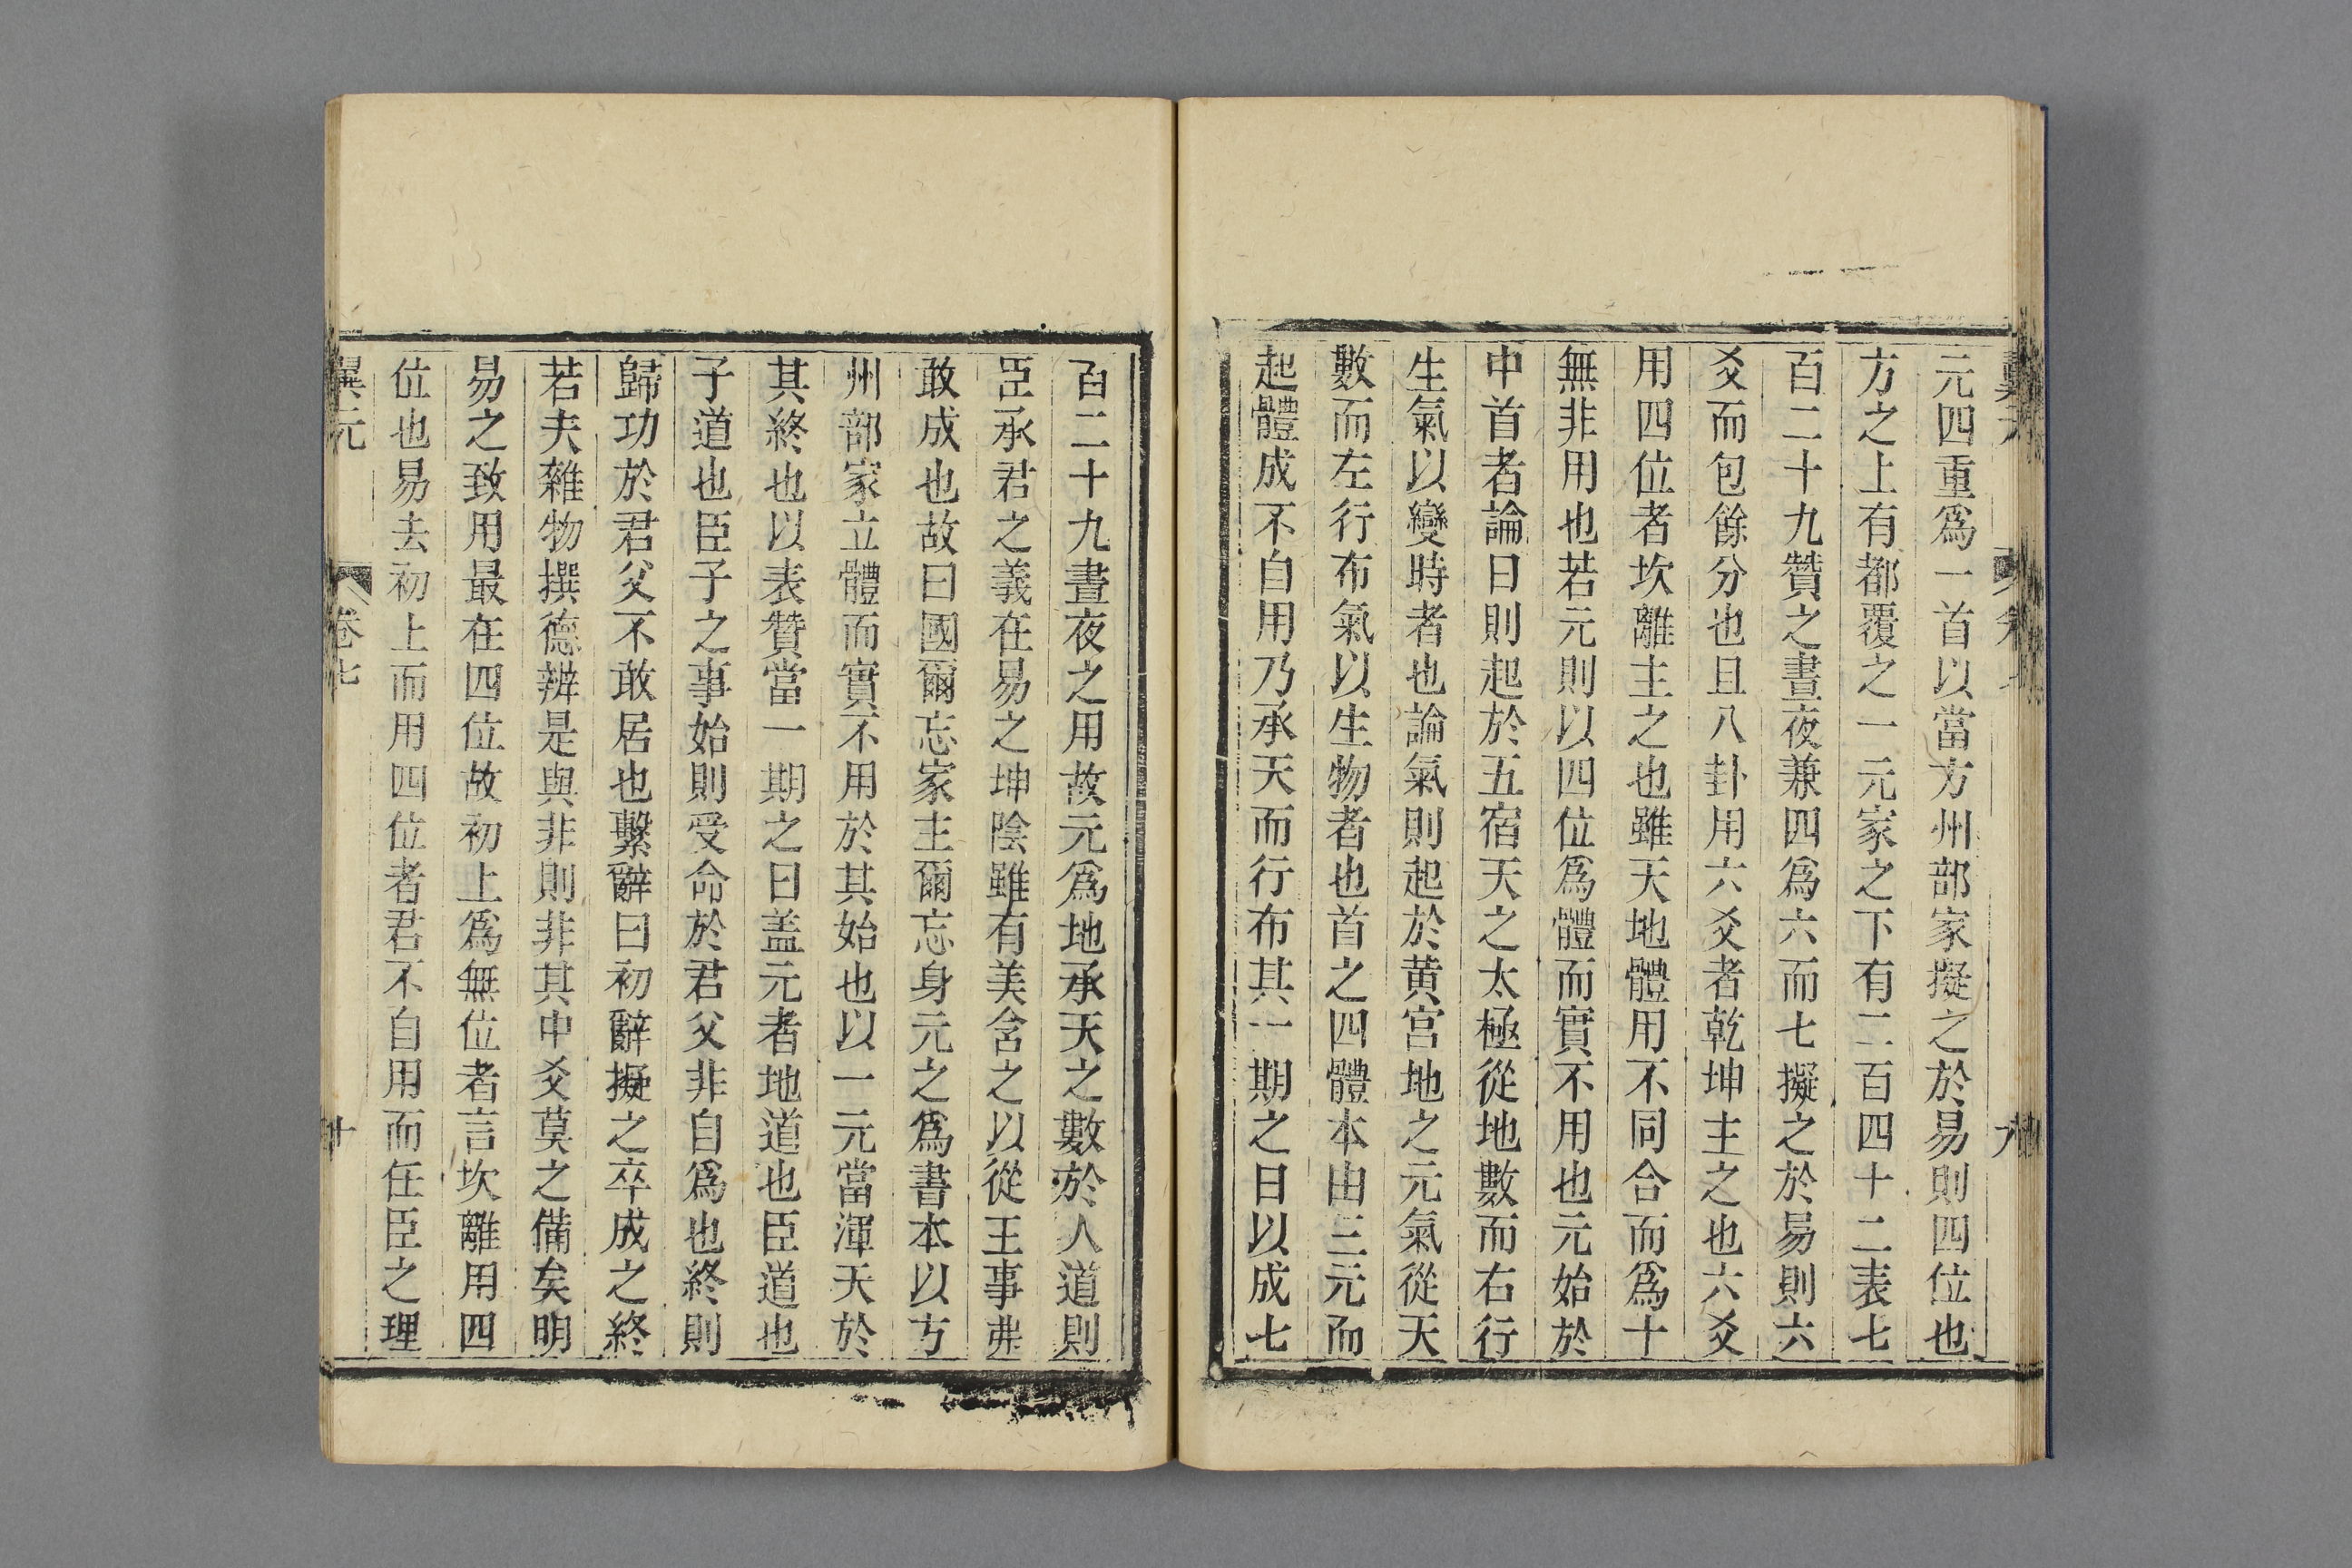 元四重爲一首以當方州部家擬之於易則四位也
方之上有都覆之一元家之下有二百四十二表七
百二十九贊之晝夜兼四爲六而七擬之於易則六
爻而包餘分也且八卦用六爻者乾坤主之也六爻
用四位者坎離主之也雖天地體用不同合而爲十
無非用也若元則以四位爲體而實不用也元始於
中首者論日則起於五宿天之太極從地數而右行
生氣以變時者也論氣則起於黄宫地之元氣從天
數而左行布氣以生物者也首之四體本由三元而
起體成不自用乃承天而行布其一期之日以成七
百二十九晝夜之用故元爲地承天之數於人道則
臣承君之義在易之坤陰雖有美含之以從王事弗
敢成也故曰國爾忘家主爾忘身元之爲書本以方
州部家立體而實不用於其始也以一元當渾天於
其終也以表贊當一期之日盖元者地道也臣道也
子道也臣子之事始則受命於君父非自爲也終則
歸功於君父不敢居也繫辭曰初辭擬之卒成之終
若夫雜物撰德辨是與非則非其中爻莫之備矣明
易之致用最在四位故初上爲無位者言坎離用四
位也易去初上而用四位者君不自用而任臣之理
翼元 卷七 十